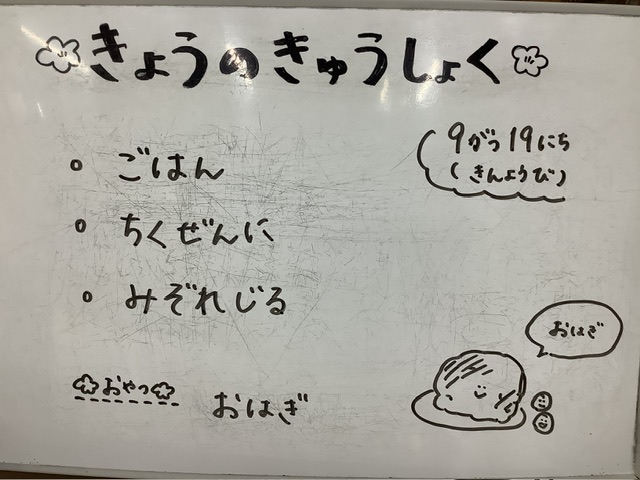 きょうのきゅうしょく
9がつ19にち
(きんようび)
・ごはん
・ちくぜんに
・みぞれじる
おやつ
おはぎ
おはぎ